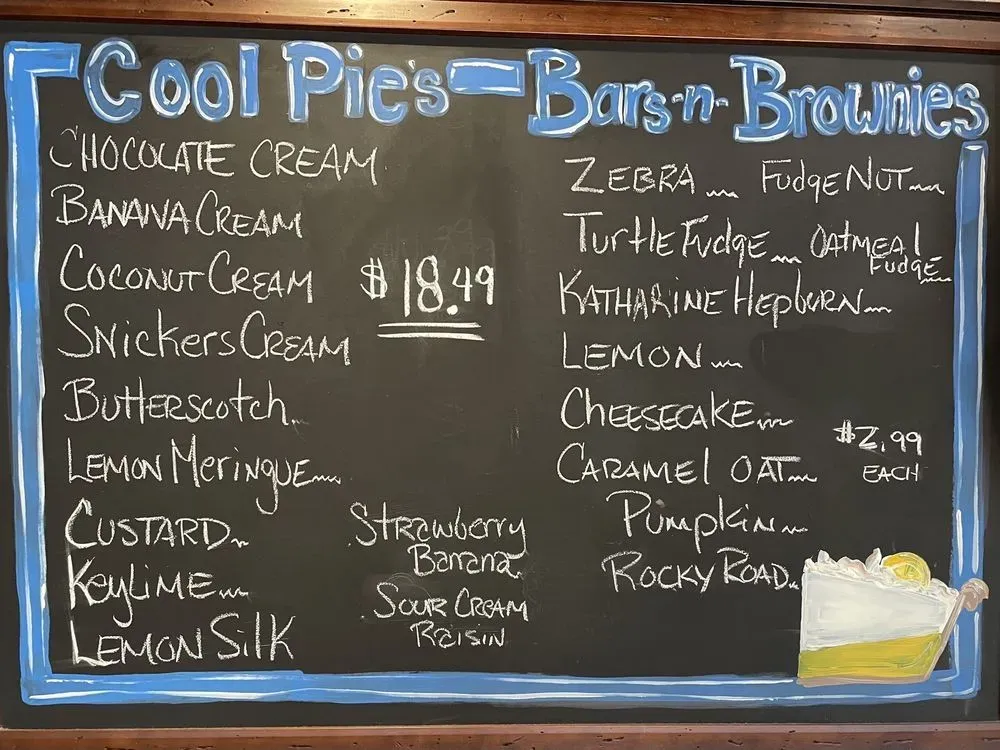 Cool Pie's - Bars-n-Brownies
CHOCOLATE CREAM
BANANA CREAM
COCONUT CREAM
$18.49
Snickers CREAM
Butterscotch
LEMON Meringue
CUSTARD
KeyLIME
LEMON SilK
Strawberry
Banana
SOUR CREAM
RAISIN
ZEBRA
Fudge NUT
Turtle Fudge
OATMEAL
Fudge
KATHARINE HepBURN
LEMON
CHEESECAKE
CARAMEL OAT
$2.99
EACH
Pumpkin
ROCKY ROAD